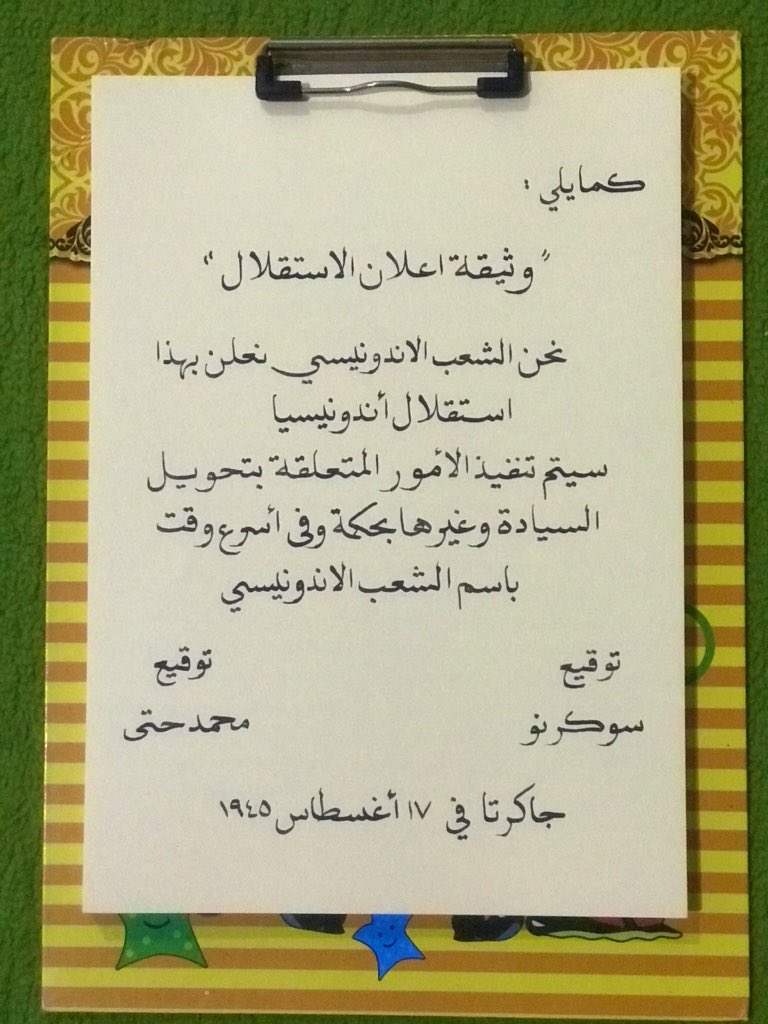 كمايلي :
"وثيقة اعلان الاستقلال"
نحن الشعب الاندونيسي نعلن بهذا
استقلال أندونيسيا
سيتم تنفيذ الأمور المتعلقة بتحويل
السيادة وغيرها بحكمة وفى أسرع وقت
باسم الشعب الاندونيسي
توقيع توقيع
سوكرنو محمد حتى
جاكرتا في ١٧ أغسطاس ١٩٤٥